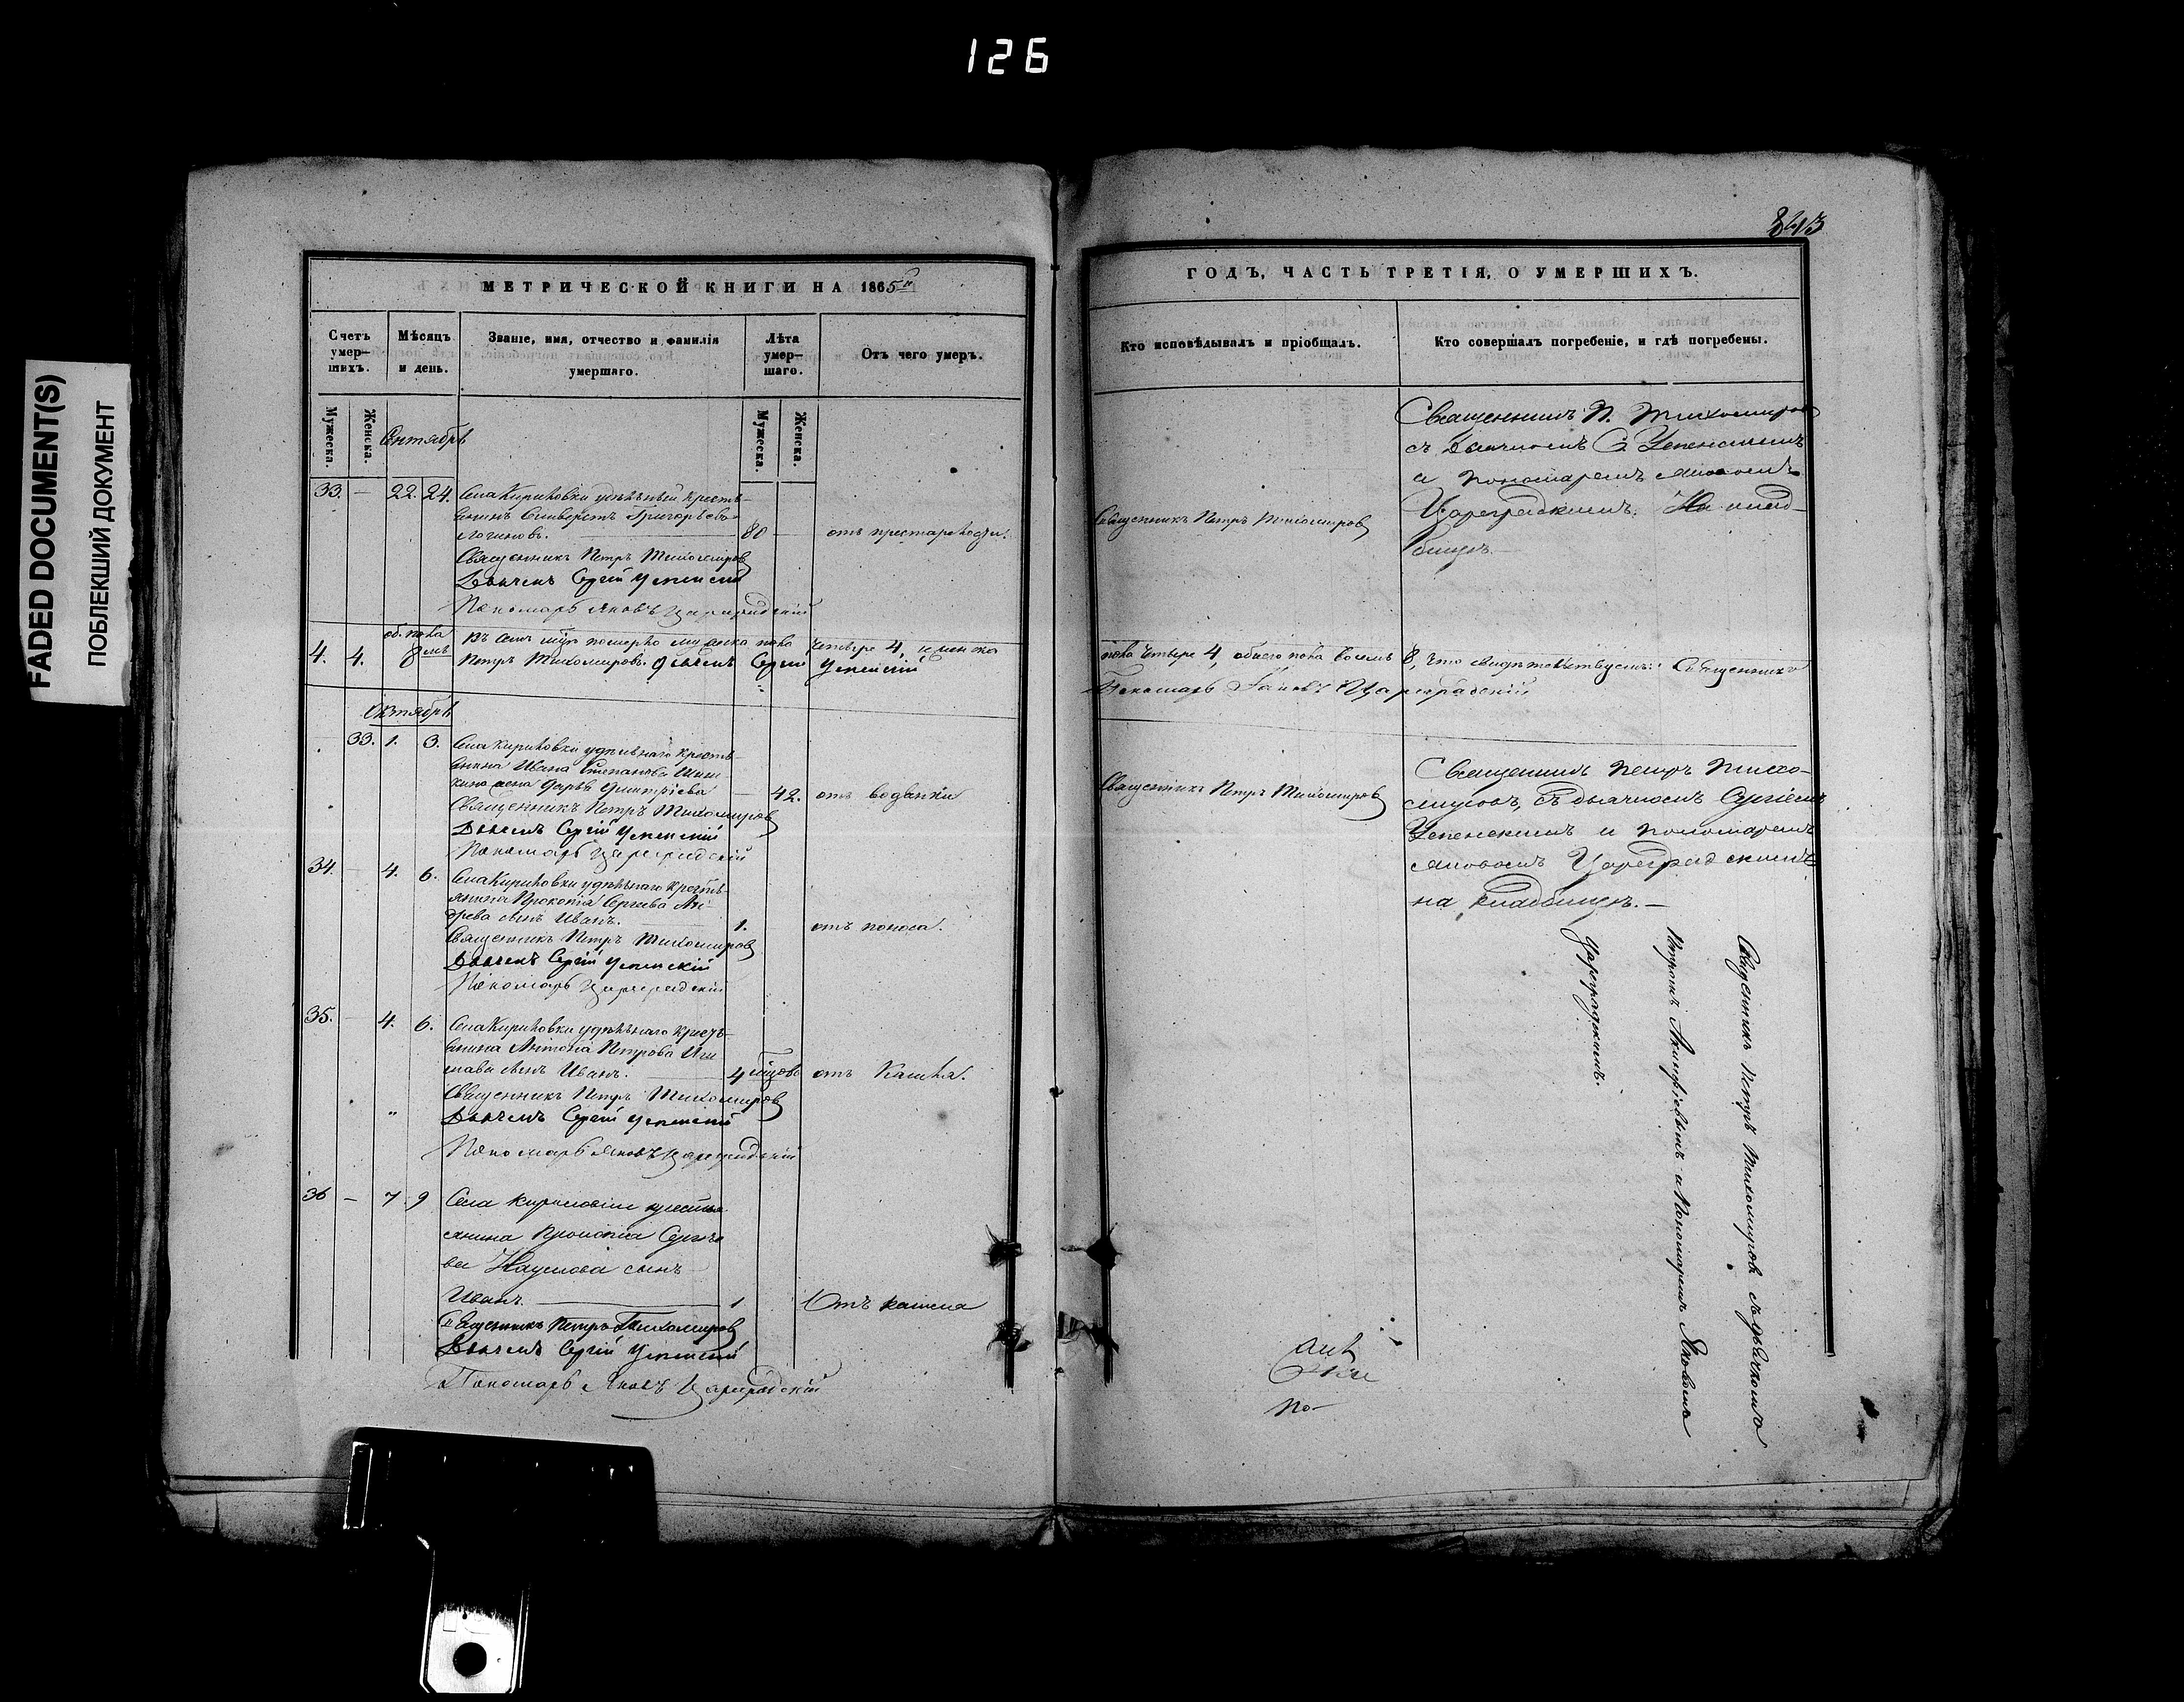 126
FADED DOCUMENT(S)
ПОБЛЕКШИЙ ДОКУМЕНТ
МЕТРИЧЕСКОЙ КНИГИ НА 1865й
Счетъ умер-
шихъ.
Мѣсяцъ
и день.
Званіе, имя, отчество и фамилія
умершаго.
Лѣта
умер-
шаго.
Отъ чего умеръ.
Мужеска.
Женска.
Мужеска.
Женска.
33. — 22. 24. Села Кириловки удѣльный кресть-
янинъ Григорьевъ
80 — отъ престарелости.
Священникъ Петръ Тихомировъ
Дьячекъ Сергій Успенскій
Пономарь Яковъ Цареградскій
об. пола
4. 4. 8мь Въ семъ м-цѣ померло мужеска пола четыре 4, и женска
Петръ Тихомировъ. Дьячекъ Сергій Успенскій
Октябрь
33. 1. 3. Села Кириловки удѣльнаго кресть-
янина Ивана Степанова
жена Дарья Дмитріева — 42. отъ водянки
Священникъ Петръ Тихомировъ
Дьячекъ Сергій Успенскій
Пономарь Цареградскій
34. — 4. 6. Села Кириловки удѣльнаго кресть-
янина Прокопія Сергѣева Ан-
древа сынъ Иванъ. 1. отъ поноса.
Священникъ Петръ Тихомировъ
Дьячекъ Сергій Успенскій
Пономарь Цареградскій
35. — 4. 6. Села Кириловки удѣльнаго кресть-
янина Антона Петрова
сынъ Иванъ. 4 отъ кашля.
Священникъ Петръ Тихомировъ
Дьячекъ Сергій Успенскій
Пономарь Яковъ Цареградскій
36 — 7. 9 Села Кириловки кресть-
янина Прокопія Сергѣе-
ва Наумова сынъ
Иванъ. 1 Отъ кашля
Священникъ Петръ Тихомировъ
Дьячекъ Сергій Успенскій
Пономарь Яковъ Цареградскій
ГОДЪ, ЧАСТЬ ТРЕТІЯ, О УМЕРШИХЪ.
Кто исповѣдывалъ и пріобщалъ.
Кто совершалъ погребеніе, и гдѣ погребены.
Священникъ П. Тихомировъ
съ дьячкомъ С. Успенскимъ
и пономаремъ Яковомъ
Цареградскимъ. На клад-
бищѣ.
Священникъ Петръ Тихомировъ
пола четыре 4, обоего пола восемь 8, что свидѣтельствуемъ: Священникъ
Пономарь Яковъ Цареградскій
Священникъ Петръ Тихомировъ
Священникъ Петръ Тихо-
мировъ, съ дьячкомъ Сергіемъ
Успенскимъ и пономаремъ
Яковомъ Цареградскимъ
на кладбищѣ. —
Священникъ Петръ Тихомировъ съ дьячкомъ
Петромъ Акинфіевымъ и Пономаремъ Яковомъ
Цареградскимъ.